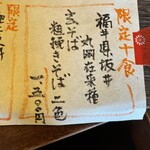 限定十食
福井県坂井
丸岡在来種
玄そば
粗挽きそば二色
千五〇〇円
限定